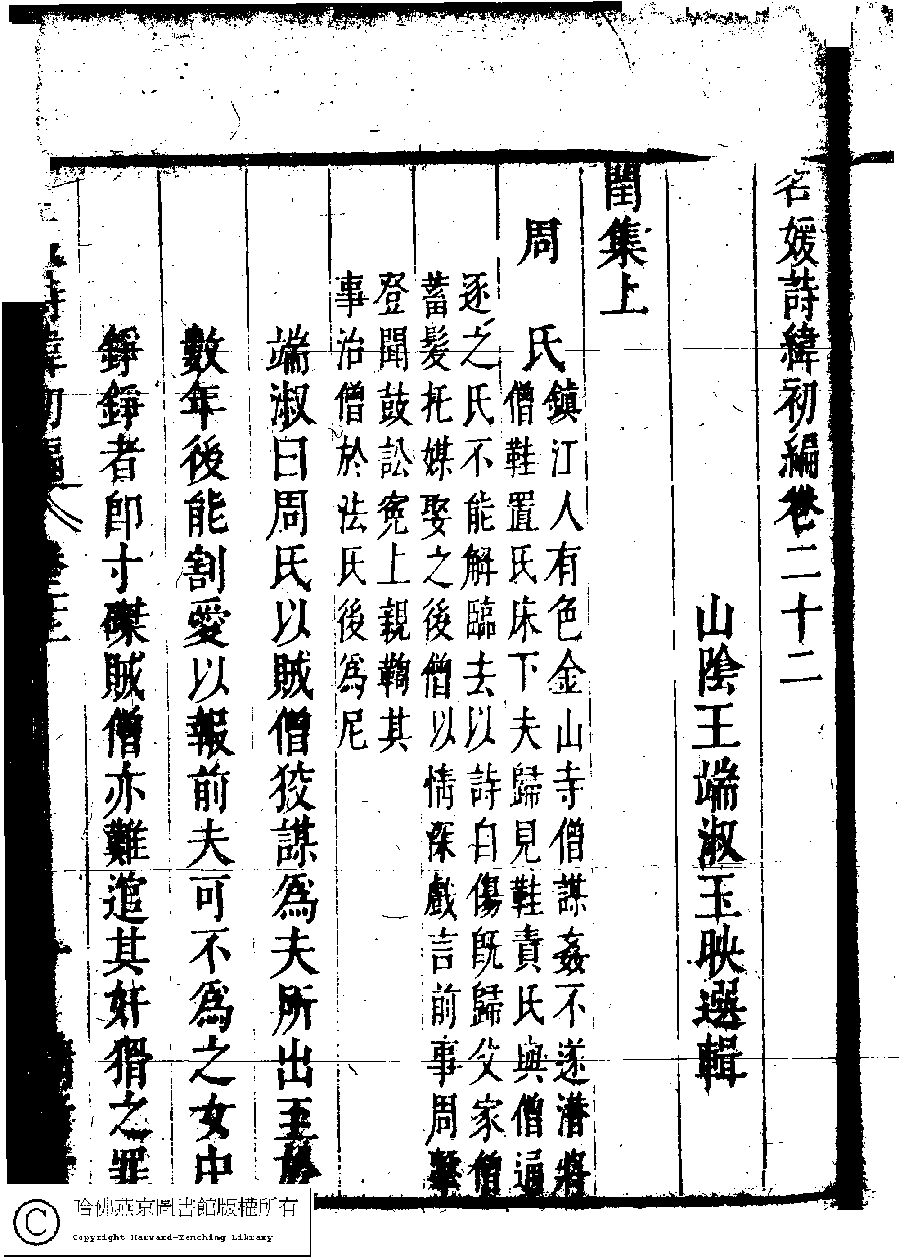 名媛詩緯初編卷二十二
山陰王端淑玉映選輯
閏集上
周氏
鎮江人有色金山寺僧謀姦不遂潛將
僧鞋置氏床下夫歸見鞋責氏與僧通
逐之氏不能解臨去以詩自傷旣歸父家僧
蓄髮托媒娶之後僧以情深戲言前事周擊
登聞鼓訟寃上親鞫其
事治僧於法氏後爲尼
端淑曰周氏以賊僧狡謀爲夫所出至於
數年後能割愛以報前夫可不爲之女中
錚錚者卽寸磔賊僧亦難逭其奸猾之罪
哈佛燕京圖書館版權所有
Copyright Harvard-Yenching Library